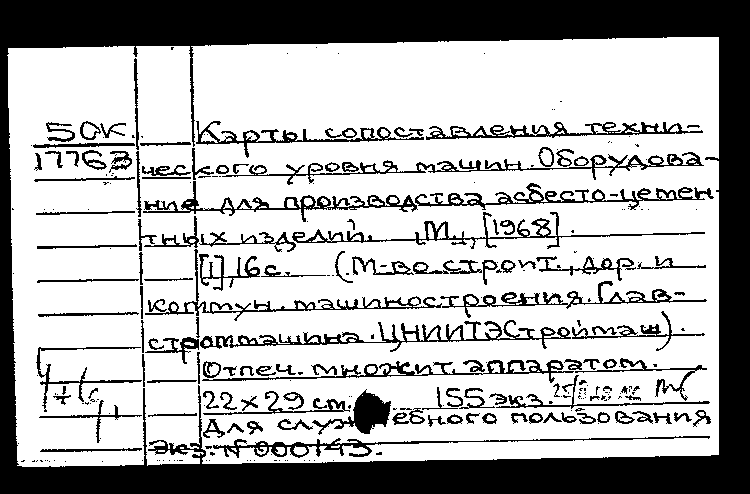 50К. Карты сопоставления техни-
17763 ческого уровня машин. Оборудова-
ние для производства асбесто-цемен-
тных изделий. М., [1968].
[1], 16с. (М-во строит., дор. и
коммун. машиностроения. Глав-
строммашина. ЦНИИТЭСтроймаш).
Отпеч. множит. аппаратом.
22×29 см. 155 экз.
Для служебного пользования
экз. № 000143.